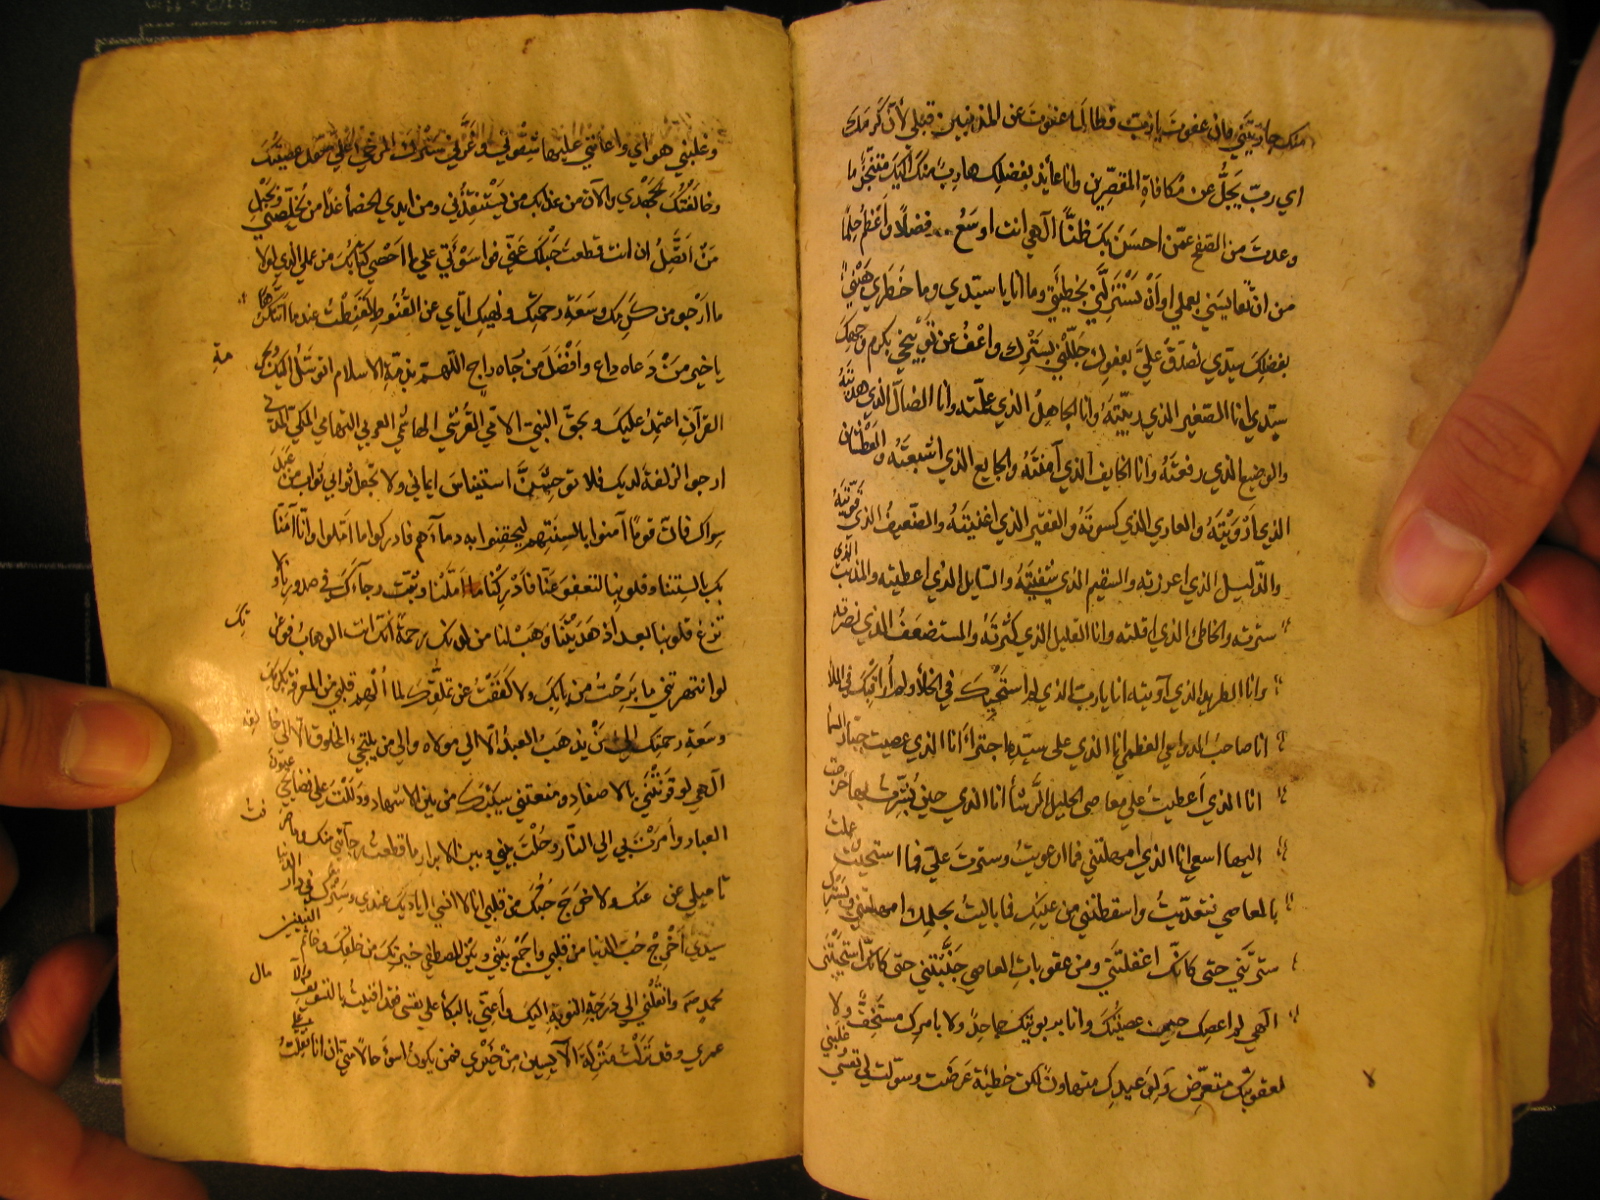 منك جازيتني فان عفوت يا رب فطالما عفوت عن المذنبين قبلي لأن كرمك
اي رب يجل عن مكافاة المقصرين وانا عايذ بفضلك هارب منك اليك متنجز ما
وعدت من الصفح عمن احسن بك ظنا الهي انت اوسع فضلا واعظم حلما
من ان تقايسني بعملي او أن تستزلني بخطيئتي وما انا يا سيدي وما خطري هبني
بفضلك سيدي تصدق علي بعفوك جللني بسترك واعف عن توبيخي بكرم وجهك
سيدي انا الصغير الذي ربيته وانا الجاهل الذي علمته وانا الضال الذي هديته
والوضيع الذي رفعته وانا الخايف الذي آمنته والجايع الذي اشبعته والعطشان
الذي ارويته والعاري الذي كسوته والفقير الذي اغنيته والضعيف الذي قويته
والذليل الذي اعززته والسقيم الذي شفيته والسايل الذي اعطيته والمذنب الذي
سترته والخاطئ الذي اقلته وانا القليل الذي كثرته والمستضعف الذي نصرته
وانا الطريد الذي آويته انا يا رب الذي لم استحيك في الخلأ ولم أراقبك في الملأ
انا صاحب الدواهي العظمى انا الذي على سيده اجترأ انا الذي عصيت جبار السما
انا الذي اعطيت على معاصي الجليل الرشا انا الذي حين بشرت بها خرجت
اليها اسعى انا الذي امهلتني فما ارعويت وسترت علي فما استحييت وعملت
بالمعاصي فتعديت واسقطتني من عينك فما باليت بحلمك امهلتني وبسترك
سترتني حتى كانك اغفلتني ومن عقوبات المعاصي جنبتني حتى كانك استحييتني
الهي لم اعصك حين عصيتك وانا بربوبيتك جاحد ولا بامرك مستخف ولا
لعقوبتك متعرض ولا لوعيدك متهاون لكن خطيئة عرضت وسولت لي نفسي
وغلبني هواي واعانني عليها شقوتي وغرني سترك المرخى علي فقد عصيتك
وخالفتك بجهدي والآن من عذابك من يستنقذني ومن ايدي الخصماء غدا من يخلصني وبحبل
من اتصل ان انت قطعت حبلك عني فوا سوأتي على ما احصى كتابك من عملي الذي لولا
ما ارجو من كرمك وسعة رحمتك ونهيك اياي عن القنوط لقنطت عندما اتذكرها
يا خير من دعاه داع وافضل من رجاه راج اللهم بذمة الاسلام اتوسل اليك وبحرمة
القرآن اعتمد عليك وبحق النبي الامي القرشي الهاشمي العربي التهامي المكي المدني
ارجو الزلفة لديك فلا توحش استيناس ايماني ولا تجعل ثوابي ثواب من عبد
سواك فان قوما آمنوا بالسنتهم ليحقنوا به دماءهم فادركوا ما املوا وانا آمنا
بك بالسنتنا وقلوبنا لتعفو عنا فادركنا ما املنا وثبت رجاءك في صدورنا ولا
تزغ قلوبنا بعد اذ هديتنا وهب لنا من لدنك رحمة انك انت الوهاب فوعزتك
لو انتهرتني ما برحت من بابك ولا كففت عن تملقك لما الهم قلبي من المعرفة بكرمك
وسعة رحمتك الى من يذهب العبد الا الى مولاه والى من يلتجئ المخلوق الا الى خالقه
الهي لو قرنتني بالاصفاد ومنعتني سيبك من بين الاشهاد ودللت على فضايحي عيون
العباد وامرت بي الى النار وحلت بيني وبين الابرار ما قطعت رجائي منك وما صرفت
تاميلي عن عفوك ولا خرج حبك من قلبي انا لا انسى اياديك عندي وسترك في دار الدنيا
سيدي اخرج حب الدنيا من قلبي واجمع بيني وبين المصطفى خيرتك من خلقك وخاتم النبيين
محمد صم وانقلني الى درجة التوبة اليك واعني بالبكاء على نفسي فقد افنيت بالتسويف والآمال
عمري وقد نزلت منزلة الآيسين من خيري فمن يكون اسوء حالا مني ان انا نقلت على